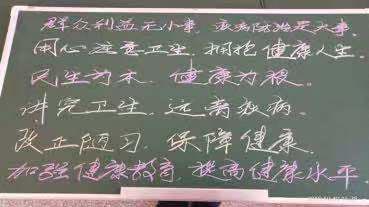 群众利益无小事,疾病防治是大事.
用心注意卫生,拥抱健康人生.
民生为本,健康为根.
讲究卫生,远离疾病.
改正陋习,保障健康.
加强健康教育,提高健康水平.